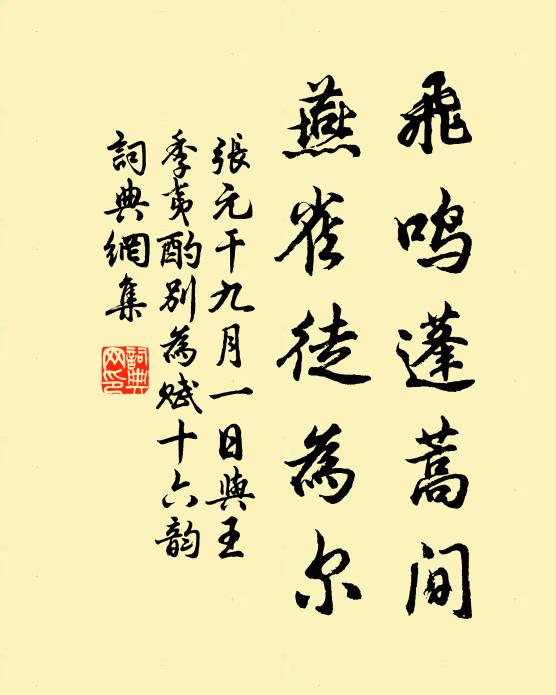 飛鳴蓬蒿間
燕雀徒為尔
張元干九月一日與王
季夷酌別為賦十六韵
詞典網集
詞典網印